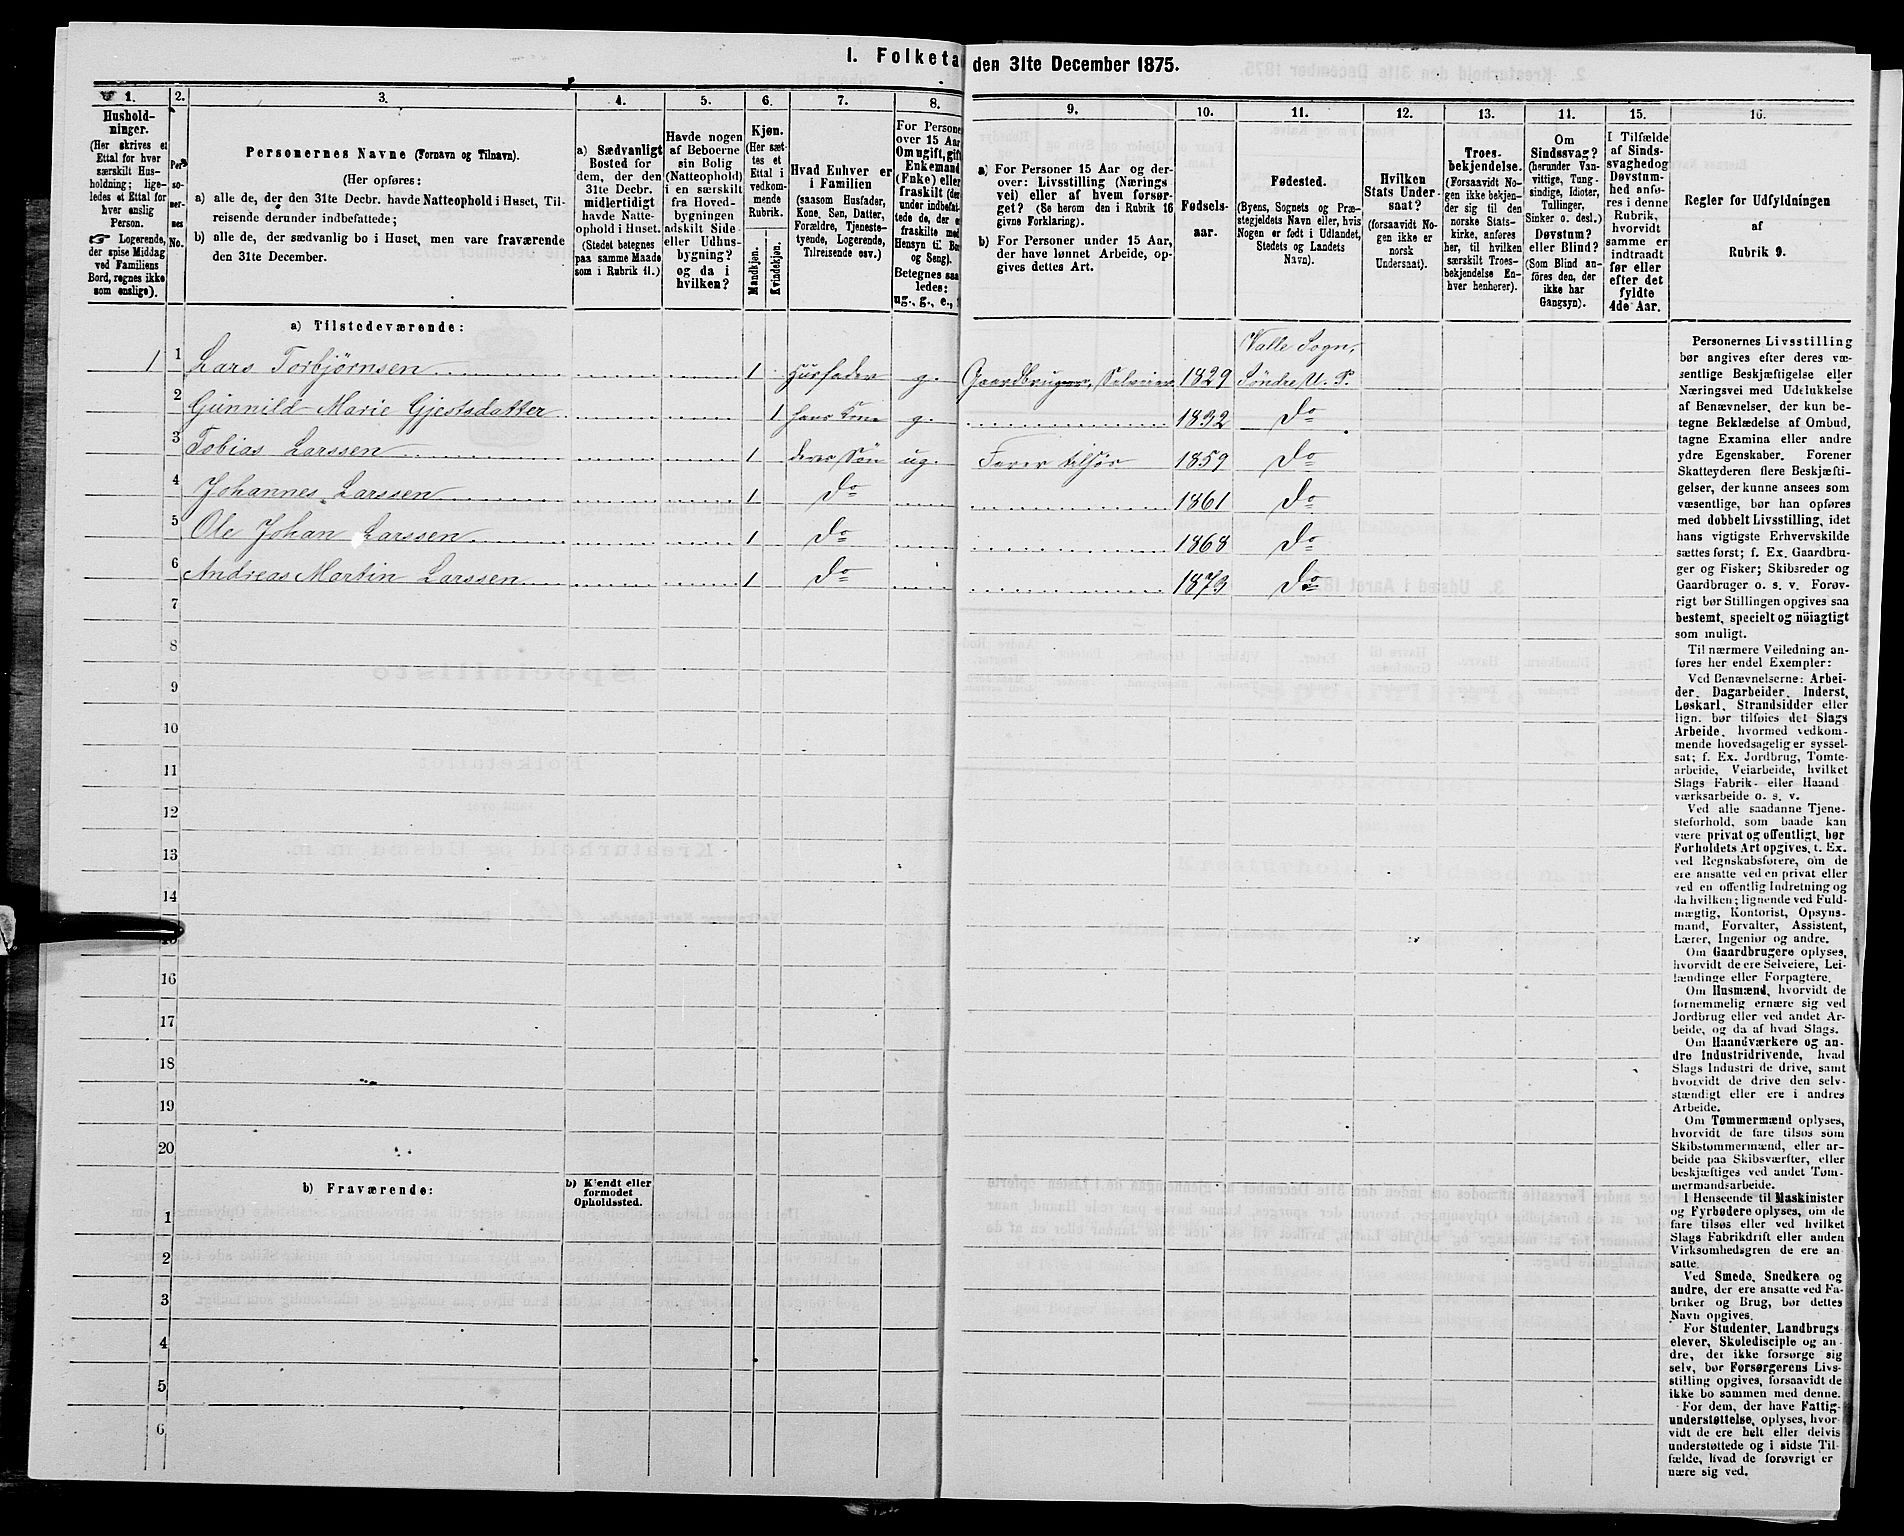 1. Folketal den 31te December 1875.
1. 2. 3. 4. 5. 6. 7. 8. 9. 10. 11. 12. 13. 14. 15. 16.
Hushold-
ninger.
(Her skrives et
Ettal for hver
særskilt Hus-
holdning; lige-
ledes et Ettal for
hver enslig
Person.
☞ Logerende,
der spise Middag
ved Familiens
Bord, regnes ikke
som enslige).
Per-
so-
ner-
nes
No.
Personernes Navne (Fornavn og Tilnavn).
(Her opføres:
a) alle de, der den 31te Decbr. havde Natteophold i Huset, Til-
reisende derunder indbefattede;
b) alle de, der sædvanlig bo i Huset, men vare fraværende
den 31te December.
a) Sædvanligt
Bosted for
dem, der den
31te Decbr.
midlertidigt
havde Natte-
ophold i Huset.
(Stedet betegnes
paa samme Maade
som i Rubrik 11.)
Havde nogen
af Beboerne
sin Bolig
(Natteophold)
i en særskilt
fra Hoved-
bygningen
adskilt Side-
eller Udhus-
bygning?
og da i
hvilken?
Kjøn.
(Her sæt-
tes et
Ettal i
vedkom-
mende
Rubrik.
Mandkjøn.
Kvindekjøn.
Hvad Enhver er
i Familien
(saasom Husfader,
Kone, Søn, Datter,
Forældre, Tjeneste-
tyende, Logerende,
Tilreisende osv.)
For Personer
over 15 Aar
Om ugift, gift
Enkemand
(Enke) eller
fraskilt (der
under indbefat-
tede de, der ere
fraskilte med
Hensyn til Bord
og Seng).
Betegnes saa
ledes:
ug., g., e.,
a) For Personer 15 Aar og der-
over: Livsstilling (Nærings-
vei) eller af hvem forsør-
get? (Se herom den i Rubrik 16
givne Forklaring).
b) For Personer under 15 Aar,
der have lønnet Arbeide, op-
gives dettes Art.
Fødsels-
aar.
Fødested.
(Byens, Sognets og Præ-
stegjeldets Navn eller, hvis
Nogen er født i Udlandet,
Stedets og Landets
Navn).
Hvilken
Stats Under-
saat?
(forsaavidt No-
gen ikke er
norsk
Undersaat).
Troes-
bekjendelse.
(Forsaavidt No-
gen ikke bekjen-
der sig til den
norske Stats-
kirke, anføres
her, til hvilken
særskilt Troes-
bekjendelse En-
hver henhører).
Om
Sindssvag?
(herunder Van-
vittige, Tung-
sindige, Idioter,
Tullinger,
Sinker o. desl.)
Døvstum?
eller Blind?
(Som Blind an-
føres den, der
ikke har
Gangsyn).
I Tilfælde
af Sinds-
svaghed og
Døvstum-
hed anfø-
res i denne
Rubrik,
hvorvidt
samme er
indtraadt
før eller
efter det
fyldte
4de Aar.
Regler for Udfyldningen
af
Rubrik 9.
a) Tilstedeværende:
Valle Sogn,
1 1 Lars Torbjørnsen 1 Husfader g. Gaardbruger, Selveier 1829 Søndre U. P.
2 Gunnild Marie Gjestsdatter 1 hans Kone g. 1832 Do
3 Tobias Larssen 1 deres Søn ug. Farer tilsjøs 1859 Do
4 Johannes Larssen 1 Do 1861 Do
5 Ole Johan Larssen 1 Do 1868 Do
6 Andreas Martin Larssen 1 Do 1873 Do
7
8
9
10
11
12
13
14
15
16
17
18
19
20
b) Fraværende:
b) Kjendt eller
formodet
Opholdssted.
1
2
3
4
5
6
Personernes Livsstilling
bør angives efter deres væ-
sentlige Beskjæftigelse eller
Næringsvei med Udelukkelse
af Benævnelser, der kun be-
tegne Beklædelse af Ombud,
tagne Examina eller andre
ydre Egenskaber. Forener
Skatteyderen flere Beskjæfti-
gelser, der kunne ansees som
væsentlige, bør han opføres
med dobbelt Livsstilling, idet
hans vigtigste Erhvervskilde
sættes først; f. Ex. Gaardbru-
ger og Fisker; Skibsreder og
Gaardbruger o. s. v. Forøv-
rigt bør Stillingen opgives saa
bestemt, specielt og nøiagtigt
som muligt.
Til nærmere Veiledning an-
føres her endel Exempler:
Ved Benævnelserne: Arbei-
der, Dagarbeider, Inderst,
Løskarl, Strandsidder eller
lign. bør tilføies det Slags
Arbeide, hvormed vedkom-
mende hovedsagelig er syssel-
sat; f. Ex. Jordbrug, Tomte-
arbeide, Veiarbeide, hvilket
Slags Fabrik- eller Haand
værksarbeide o. s. v.
Ved alle saadanne Tjene-
steforhold, som baade kan
være privat og offentligt, bør
Forholdets Art opgives, t. Ex.
ved Regnskabsførere, om de
ere ansatte ved en privat eller
ved en offentlig Indretning og
da hvilken; lignende ved Fuld-
mægtig, Kontorist, Opsyns-
mand, Forvalter, Assistent,
Lærer, Ingeniør og andre.
Om Gaardbrugere oplyses,
hvorvidt de ere Selveiere, Lei-
lændinge eller Forpagtere.
Om Husmænd, hvorvidt de
fornemmelig ernære sig ved
Jordbrug eller ved andet Ar-
beide, og da af hvad Slags.
Om Haandværkere og an-
dre Industridrivende, hvad
Slags Industri de drive, samt
hvorvidt de drive den selv-
stændigt eller ere i andres
Arbeide.
Om Tømmermænd oplyses,
hvorvidt de fare tilsøs som
Skibstømmermænd, eller ar-
beide paa Skibsværfter, eller
beskjæftiges ved andet Tøm-
mermandsarbeide.
I Henseende til Maskinister
og Fyrbødere oplyses, om de
fare tilsøs eller ved hvilket
Slags Fabrikdrift eller anden
Virksomhedsgren de ere an-
satte.
Ved Smede, Snedkere og
andre, der ere ansatte ved Fa-
briker og Brug, bør dettes
Navn opgives.
For Studenter, Landbrugs-
elever, Skoledisciple og an-
dre, der ikke forsørge sig
selv, bør Forsørgerens Livs-
stilling opgives, forsaavidt de
ikke bo sammen med denne.
For dem, der have Fattig-
understøttelse, oplyses, hvor-
vidt de ere helt eller delvis
understøttede og i sidste Til-
fælde, hvad de forøvrigt er
nære sig ved.